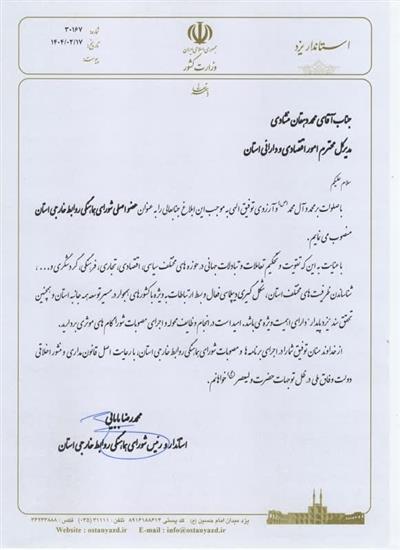 استاندار یزد
جمهوری اسلامی ایران
وزارت کشور
شماره: ۳۰۱۶۷
تاریخ: ۱۴۰۴/۰۲/۱۷
پیوست:
جناب آقای محمد دهقان منشادی
مدیرکل محترم امور اقتصادی و دارائی استان
سلام علیکم
با صلوات بر محمد و آل محمد (ص) و آرزوی توفیق الهی به موجب این ابلاغ جنابعالی را به عنوان عضو اصلی شورای هماهنگی روابط خارجی استان
منصوب می نمایم.
با عنایت به این که تقویت و تحکیم تعاملات و تبادلات جهانی در حوزه های مختلف سیاسی، اقتصادی، تجاری، فرهنگی، گردشگری و....،
شناساندن ظرفیت های مختلف استان، شکل گیری دیپلماسی فعال و بسط ارتباطات به ویژه با کشورهای همجوار در مسیر توسعه همه جانبه استان و همچنین
تحقق سند یزد پایدار دارای اهمیت ویژه می باشد. امید است در انجام وظایف محوله و اجرای مصوبات شورا گام های موثری بردارید.
از خداوند منان توفیق شما را در اجرای برنامه ها و مصوبات شورای هماهنگی روابط خارجی استان، با رعایت اصل قانون مداری و منشور اخلاقی
دولت وفاق ملی در ظل توجهات حضرت ولیعصر (عج) خواهانم.
محمدرضا بابایی
استاندار و رئیس شورای هماهنگی روابط خارجی استان
یزد میدان امام حسین (ع) کد پستی ۸۹۱۶۱۸۸۶۱۳ تلفن: ۳۱۱۱۱ (۰۳۵) فکس: ۳۶۲۳۲۸۸۸
Website : ostanyazd.ir E-mail : info@ostanyazd.ir